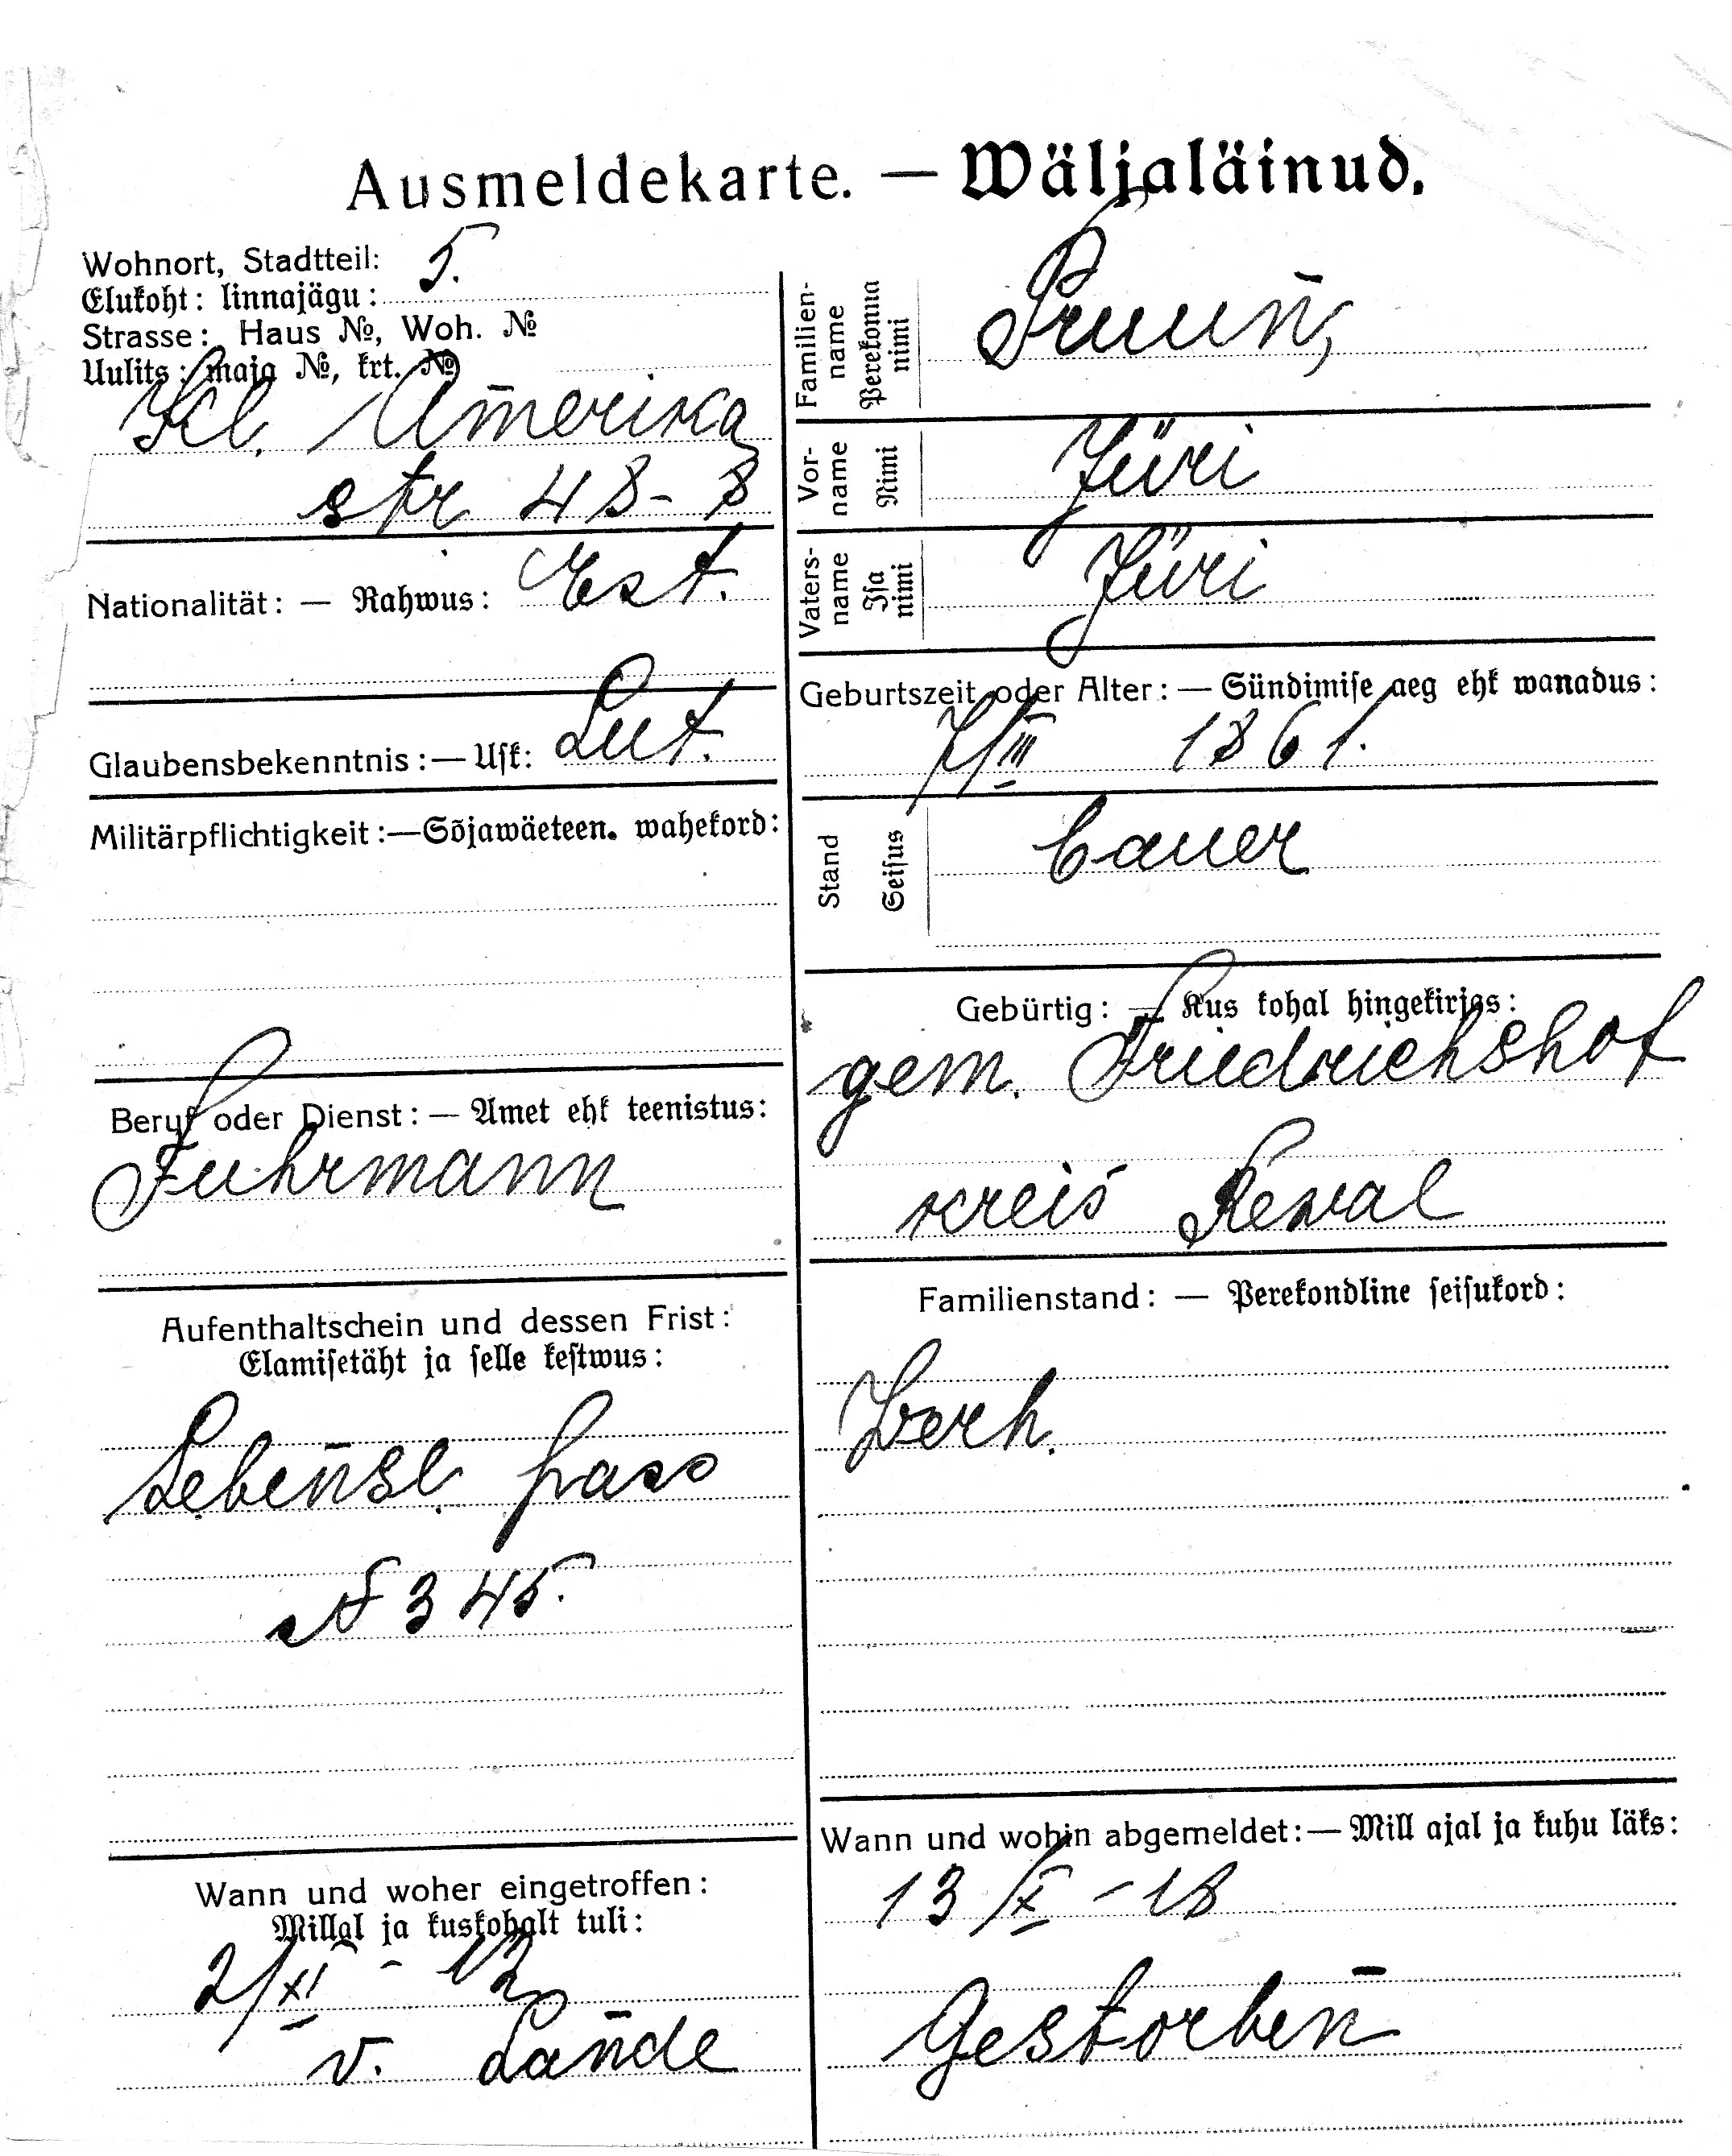 Ausmeldekarte. — Wäljaläinud.
Wohnort, Stadtteil: 5.
Elukoht: linnajägu:
Strasse: Haus №, Woh. №
Uulits: maja №, krt. №
Kl. Amerika
str 48-8
Nationalität: — Rahwus: Est.
Glaubensbekenntnis: — Usk: Lut.
Militärpflichtigkeit: — Sõjawäeteen. wahekord:
Beruf oder Dienst: — Amet ehk teenistus:
Fuhrmann
Aufenthaltschein und dessen Frist:
Elamisetäht ja selle kestwus:
Lebensl. pass
№ 345.
Wann und woher eingetroffen:
Millal ja kuskohalt tuli:
2/XI - 12
v. Lande
Familien-
name
Perekonna
nimi
Pruun,
Vor-
name
Nimi
Jüri
Vaters-
name
Isa
nimi
Jüri
Geburtszeit oder Alter: — Sündimise aeg ehk wanadus:
III 1861.
Stand
Seisus
bauer
Gebürtig: — Kus kohal hingekirjas:
gem. Friedrichshof
kreis Reval
Familienstand: — Perekondline seisukord:
Verh.
Wann und wohin abgemeldet: — Mill ajal ja kuhu läks:
13/X - 18
Gestorben